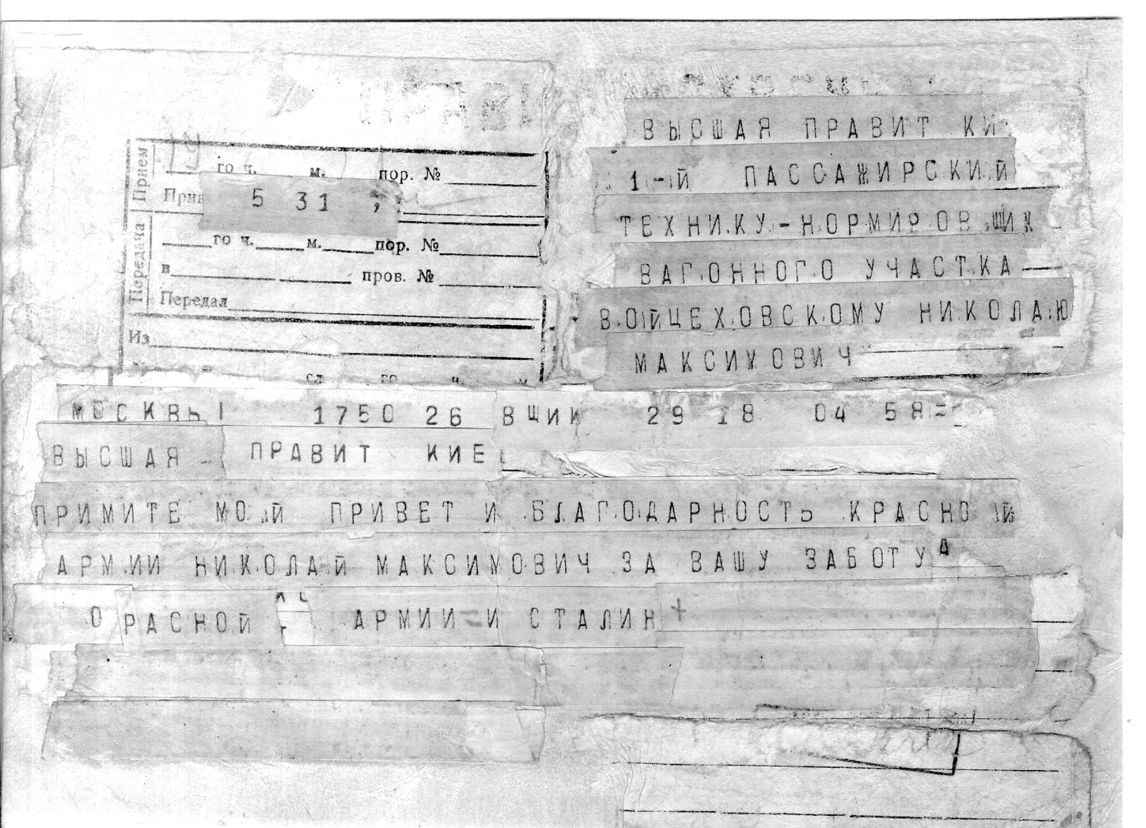 ВЫСШАЯ ПРАВИТ
1-Й ПАССАЖИРСКИЙ
ТЕХНИКУ-НОРМИРОВЩИК
ВАГОННОГО УЧАСТКА
ВОЙЦЕХОВСКОМУ НИКОЛАЮ
МАКСИМОВИЧ
Прием
го ч. м. пор. №
5 31
Передача
го ч. м. пор. №
в пров. №
Передал
Из
МОСКВЫ 1750 26 ВЩИК 29 18 04 58=
ВЫСШАЯ - ПРАВИТ КИЕ
ПРИМИТЕ МОЙ ПРИВЕТ И БЛАГОДАРНОСТЬ КРАСНОЙ
АРМИИ НИКОЛАЙ МАКСИМОВИЧ ЗА ВАШУ ЗАБОТУ
О РАСНОЙ АРМИИ=И СТАЛИН+